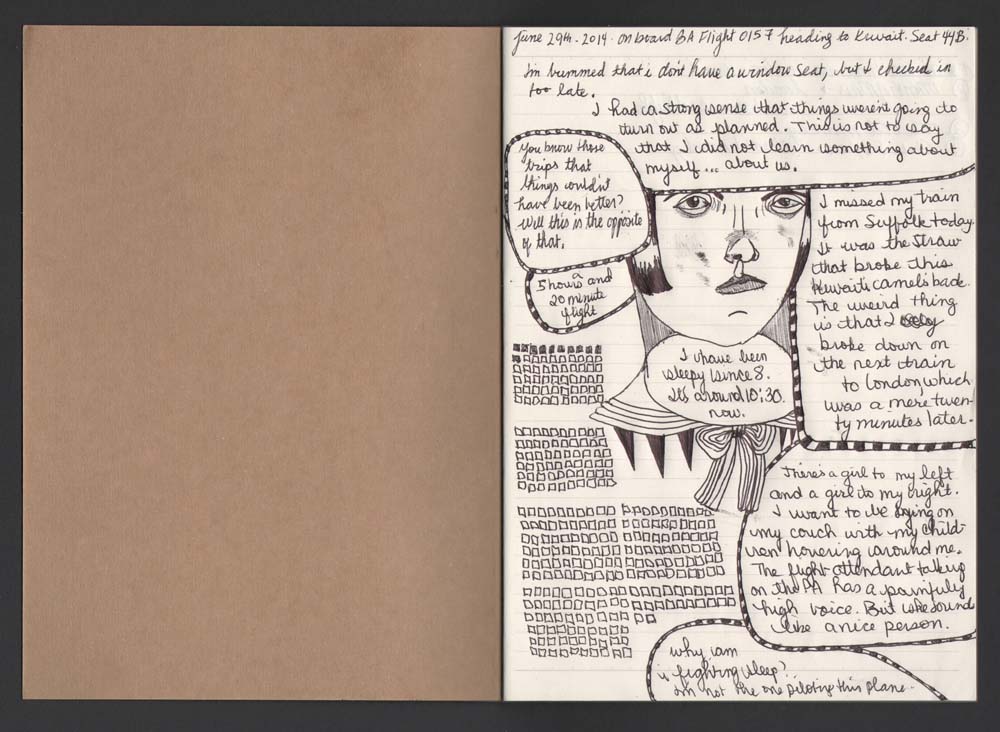 June 29th. 2014. on board BA Flight 0157 heading to Kuwait. Seat 44B.
Im bummed that i dont have a window seat, but I checked in
too late.
I had a strong sense that things weren't going to
turn out as planned. This is not to say
that I did not learn something about
myself... about us.
You know those
trips that
things couldn't
have been better?
Well this is the opposite
of that.
5 hours and a
20 minute
flight
I missed my train
from Suffolk today.
It was the straw
that broke this
Kuwaiti camel's back.
The weird thing
is that I only
broke down on
the next train
to London, which
was a mere twen-
ty minutes later.
I have been
sleepy since 8.
It's around 10:30
now.
There's a girl to my left
and a girl to my right.
I want to be lying on
my couch with my child-
ren hovering around me.
The flight attendant talking
on the PA has a painfully
high voice. But she sounds
like a nice person.
why am
i fighting sleep?
im not the one piloting this plane.